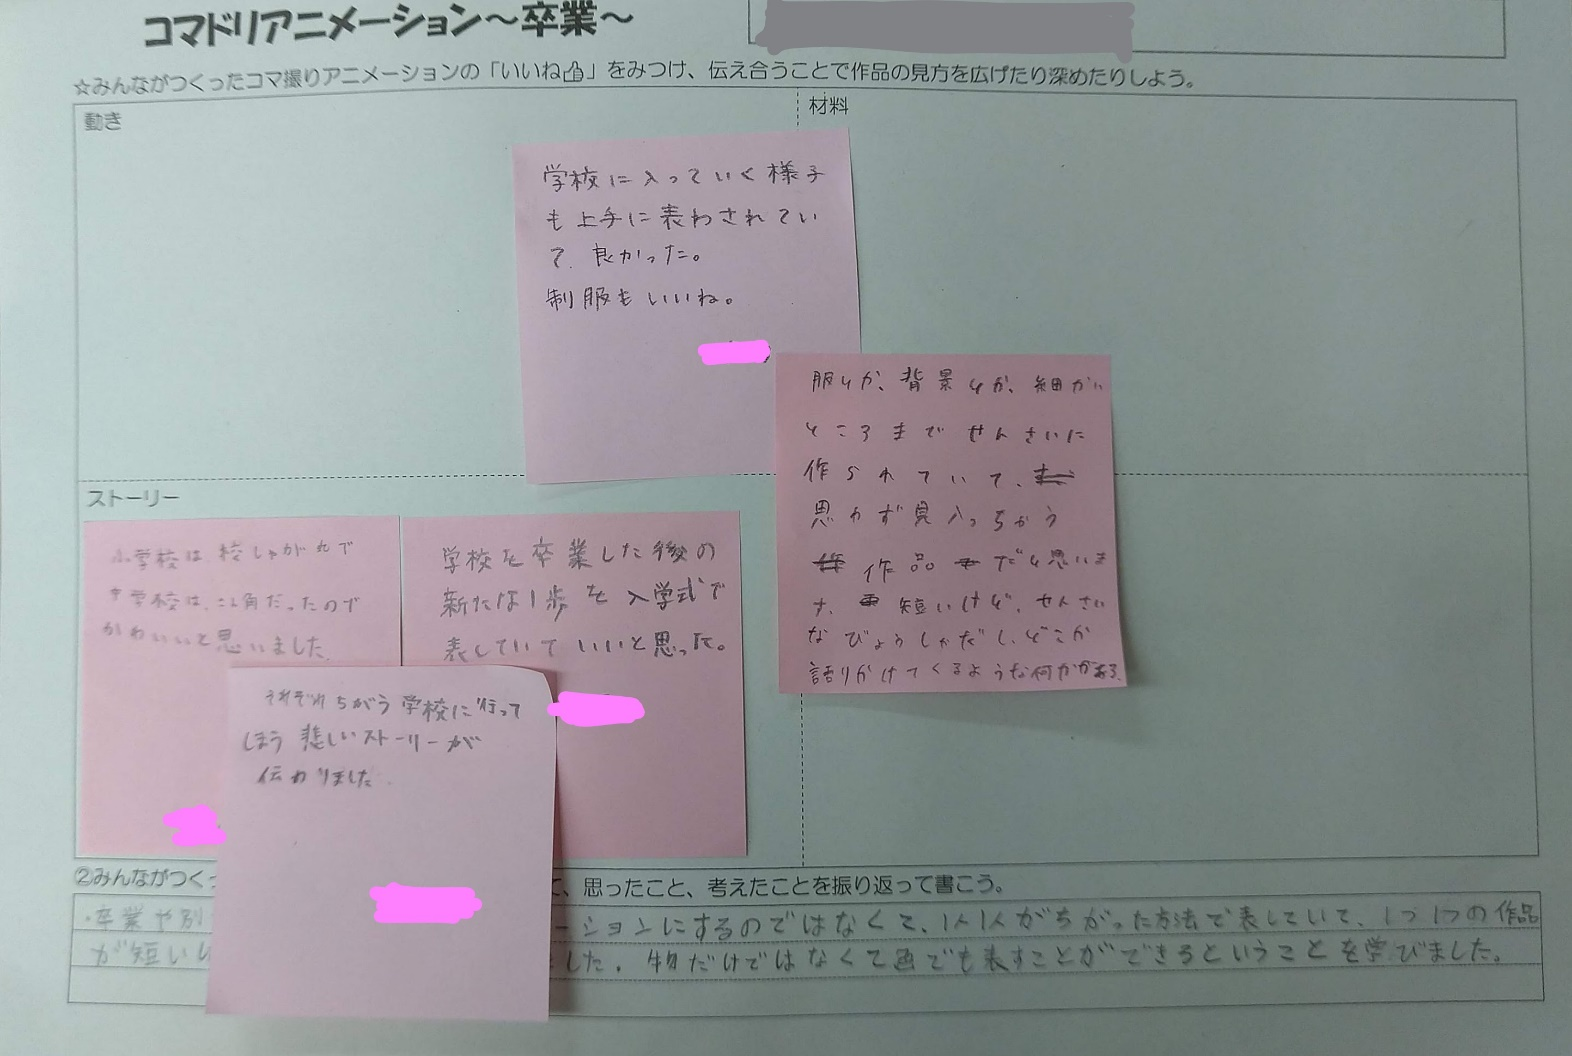 コマドリアニメーション～卒業～
☆みんながつくったコマ撮りアニメーションの「いいね👍」をみつけ、伝え合うことで作品の見方を広げたり深めたりしよう。
動き
材料
学校に入っていく様子
も上手に表わされてい
て、良かった。
制服もいいね。
服とか、背景とか、細かい
ところまでせんさいに
作られていて、
思わず見入っちゃう
作品だと思いま
す。短いけど、せんさい
なびょうしゃだし、どこか
語りかけてくるような何かがある。
ストーリー
小学校は校しゃがれで
中学校は、こ角だったので
かわいいと思いました
学校を卒業した後の
新たな1歩を入学式で
表していていいと思った。
それぞれちがう学校に行って
しまう悲しいストーリーが
伝わりました
②みんながつくっ
て、思ったこと、考えたことを振り返って書こう。
・卒業や別
ーションにするのではなくて、1人1人がちがった方法で表していて、1つ1つの作品
が短い
した。物だけではなくて画でも表すことができるということを学びました。